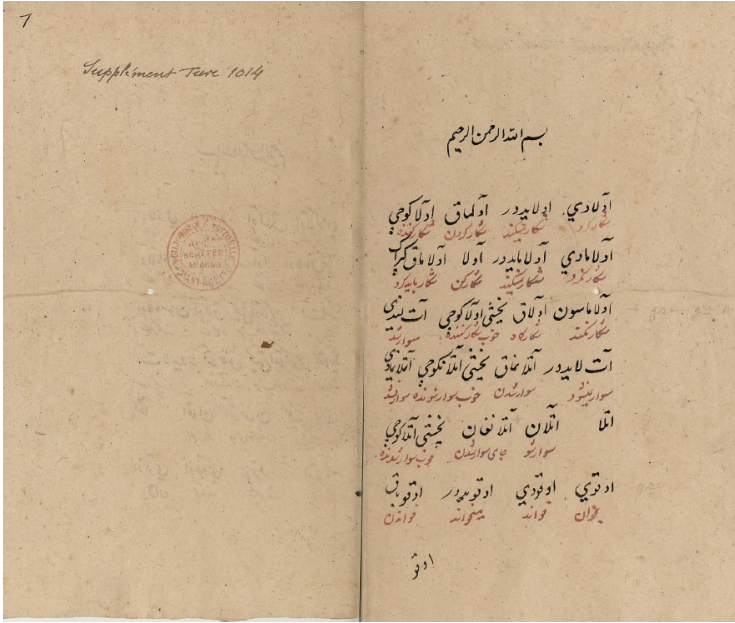 7
Supplément Turc 1014
بسم الله الرحمن الرحيم
آولادي اولايدور آولماق اولاكوجي
شكار كرد شكار ميكند شكار كردن شكار كننده
آولامادي آولامايدور آولا آولاماق كرك
شكار نكرد شكار نميكند شكار كن شكار بايد كرد
آولاماسون آولاق يخشى اولاكوجي آت لندي
شكار نكند شكار كاه خوب شكار كننده سوار شد
آت لايدور آتلانماق يخشى آتلانكوجي
سوار ميشود سوار شدن خوب سوار شونده سوار نشد
اتلا آتلان آتلانغان يخشى آتلاكوجي
سوار شو جاى سوار شدن خوب سوار شونده
اوقوي اوقودي اوقويدور اوقوماق
بخوان خواند ميخواند خواندن
اوقو